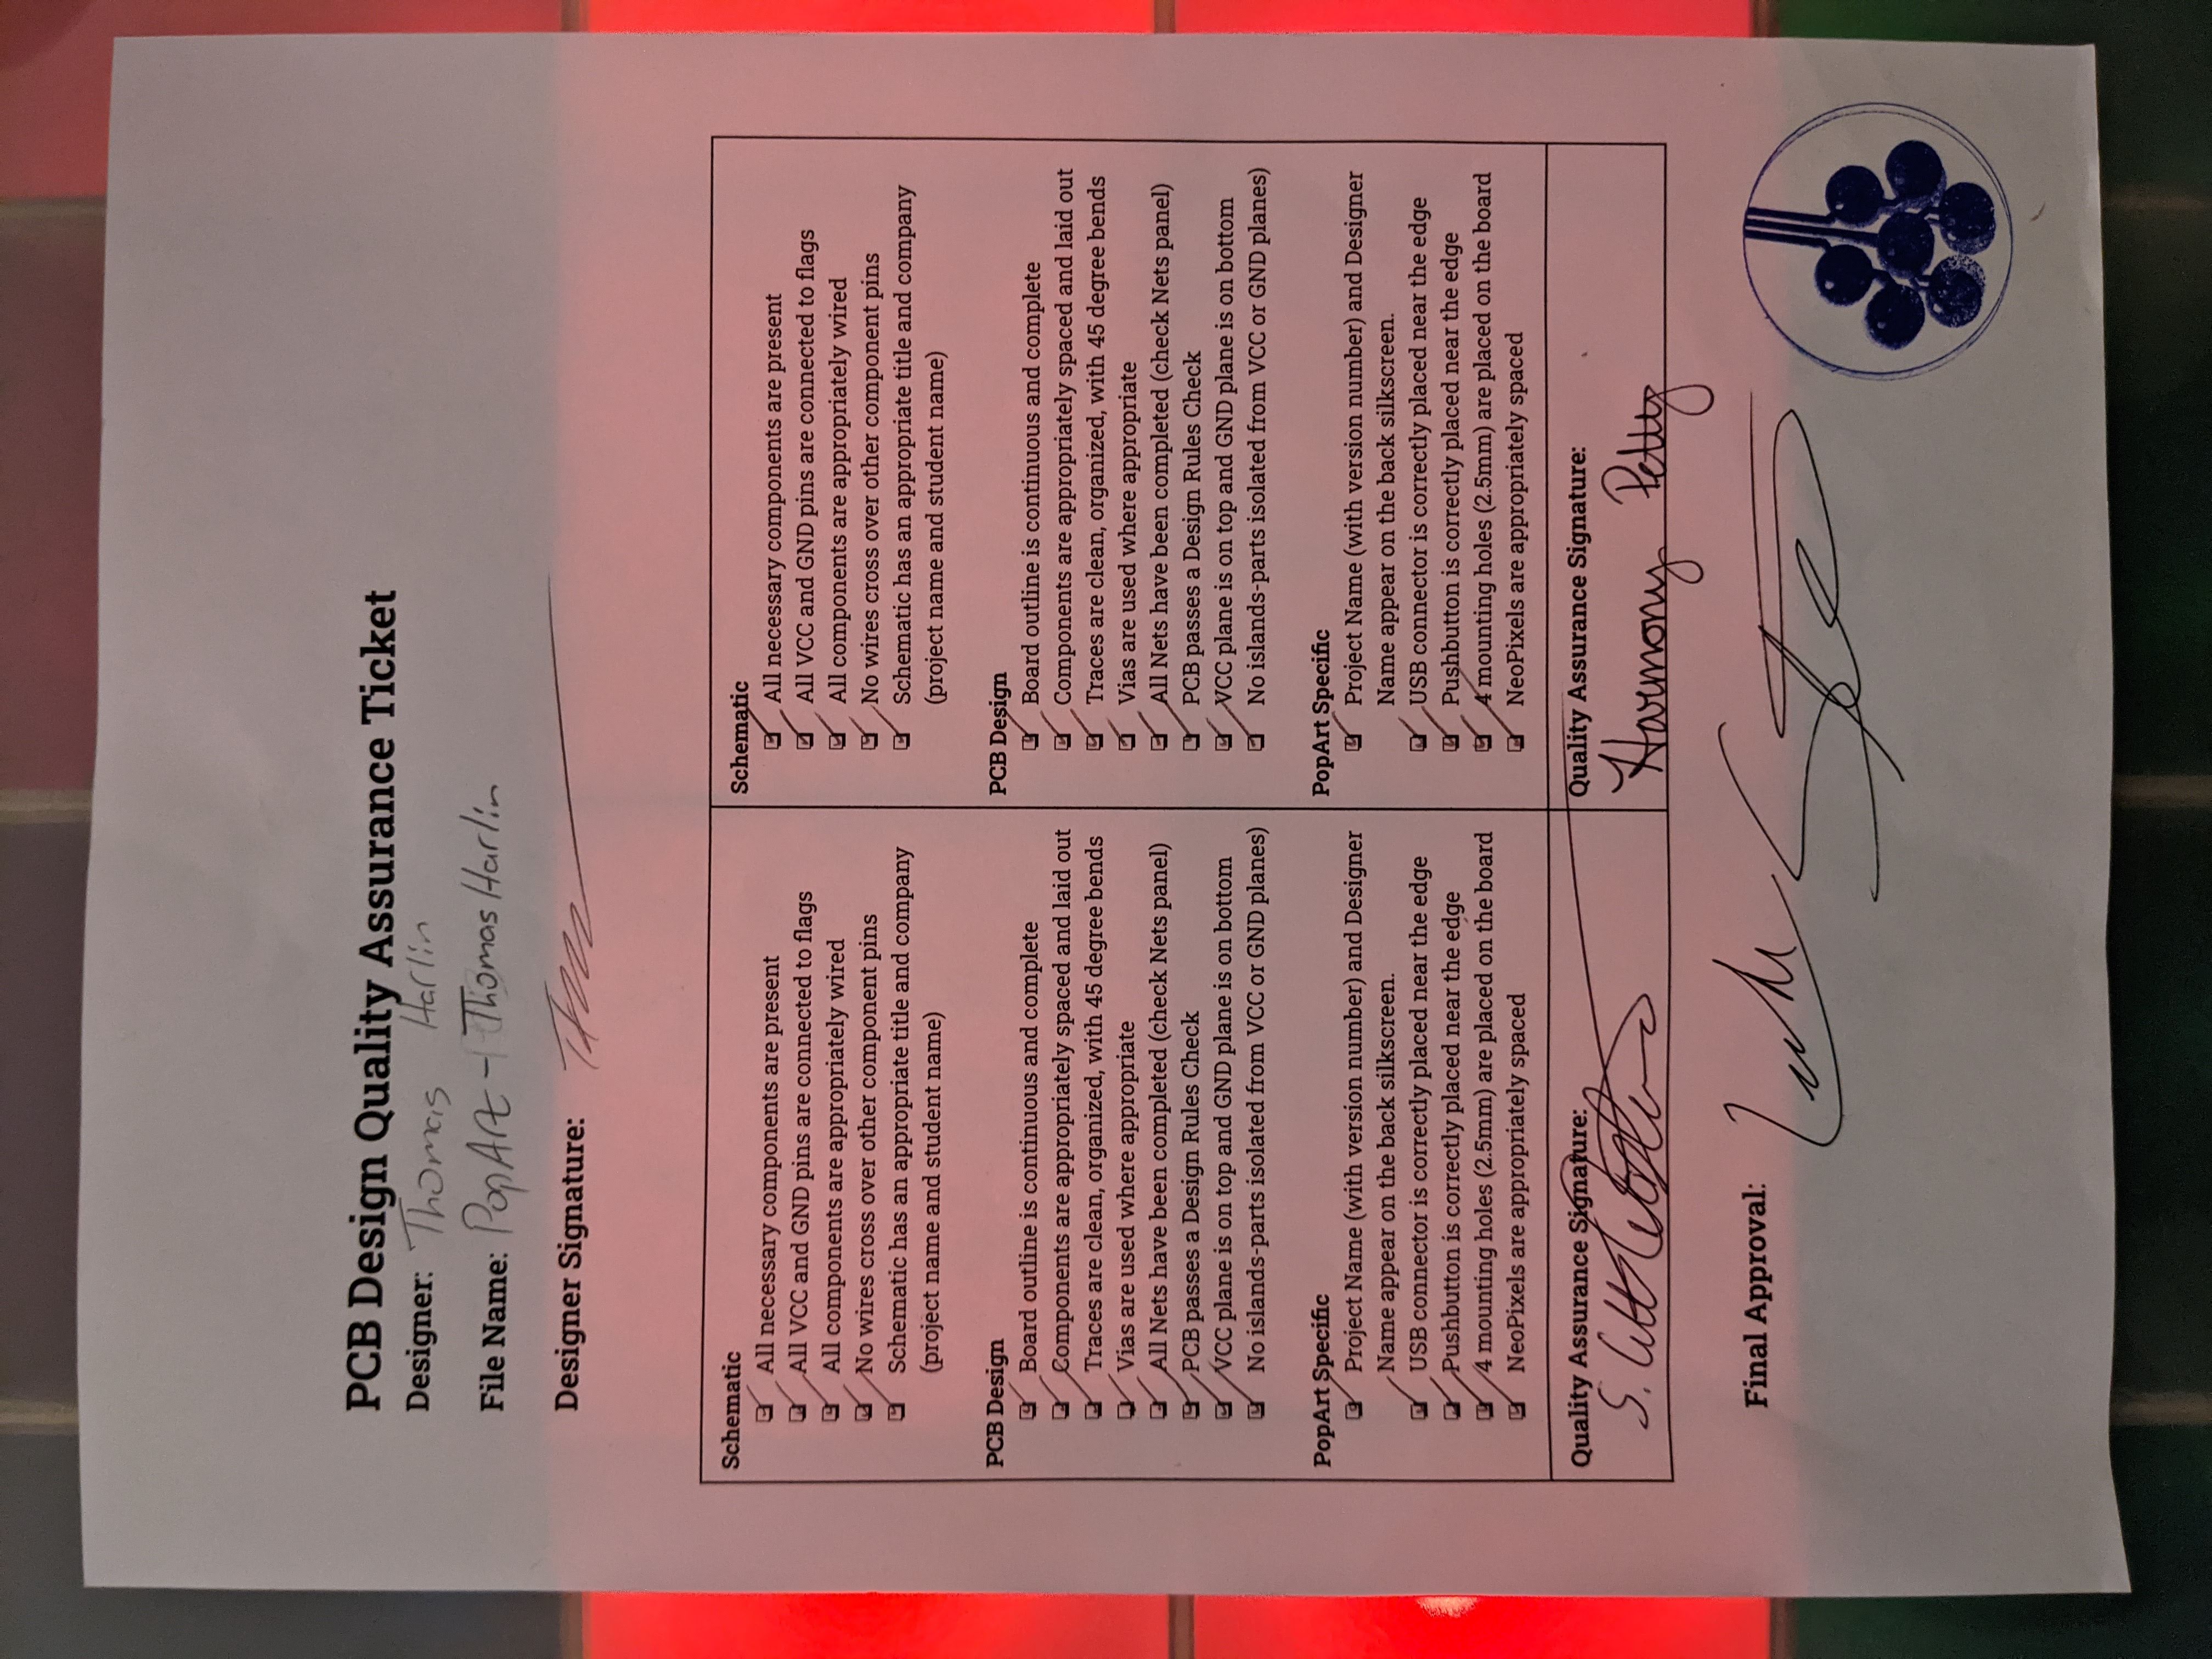 PCB Design Quality Assurance Ticket
Designer: Thomas Harlin
File Name: PopArt - Thomas Harlin
Designer Signature:
Schematic
All necessary components are present
All VCC and GND pins are connected to flags
All components are appropriately wired
No wires cross over other component pins
Schematic has an appropriate title and company
(project name and student name)
PCB Design
Board outline is continuous and complete
Components are appropriately spaced and laid out
Traces are clean, organized, with 45 degree bends
Vias are used where appropriate
All Nets have been completed (check Nets panel)
PCB passes a Design Rules Check
VCC plane is on top and GND plane is on bottom
No islands-parts isolated from VCC or GND planes)
PopArt Specific
Project Name (with version number) and Designer
Name appear on the back silkscreen.
USB connector is correctly placed near the edge
Pushbutton is correctly placed near the edge
4 mounting holes (2.5mm) are placed on the board
NeoPixels are appropriately spaced
Quality Assurance Signature:
S.
Schematic
All necessary components are present
All VCC and GND pins are connected to flags
All components are appropriately wired
No wires cross over other component pins
Schematic has an appropriate title and company
(project name and student name)
PCB Design
Board outline is continuous and complete
Components are appropriately spaced and laid out
Traces are clean, organized, with 45 degree bends
Vias are used where appropriate
All Nets have been completed (check Nets panel)
PCB passes a Design Rules Check
VCC plane is on top and GND plane is on bottom
No islands-parts isolated from VCC or GND planes)
PopArt Specific
Project Name (with version number) and Designer
Name appear on the back silkscreen.
USB connector is correctly placed near the edge
Pushbutton is correctly placed near the edge
4 mounting holes (2.5mm) are placed on the board
NeoPixels are appropriately spaced
Quality Assurance Signature:
Harmony Petty
Final Approval: